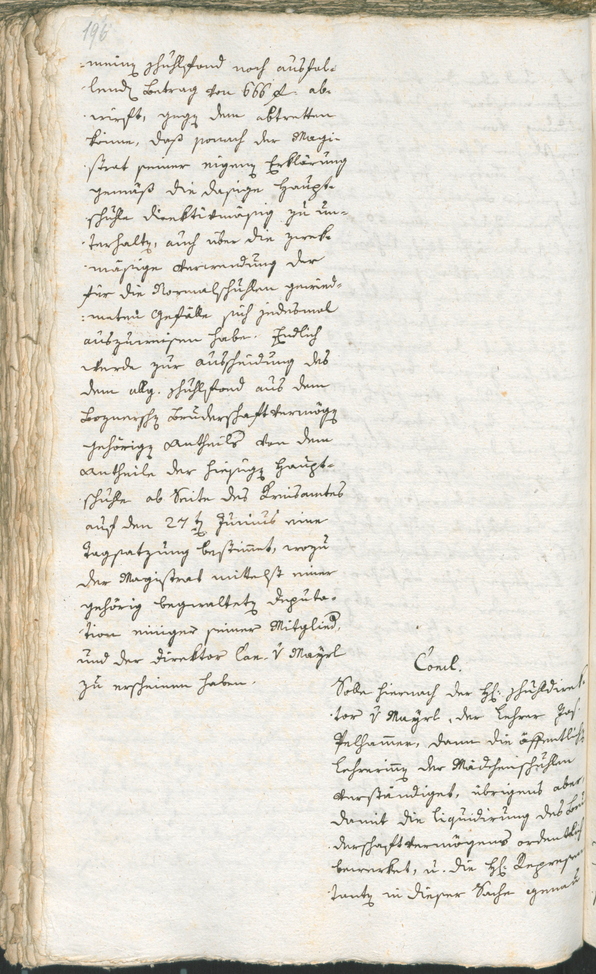 196
meinen Schulfond noch ausfal-
lende Betrag von 666 f. ab-
wirft, gegen dem abtretten
könne, daß sonach der Magi-
strat seiner eigenen Erklärung
gemäß die dasige Haupt-
schule direktivmäsig zu un-
terhalten, auch über die zwek-
mäsige Verwendung der
für die Normalschulen gewied-
meten Gefälle sich jedesmal
auszuweisen habe. Endlich
werde zur Ausscheidung des
dem allg. Schulfond aus dem
Boznerschen Bruderschaftvermögen
gehörigen Antheils von dem
Antheile der hiesigen Haupt-
schule ob Seite des Kreisamtes
auf den 27ten Junius eine
Tagsatzung bestimmet, wozu
der Magistrat mittelst einer
gehörig begwalteten Deputa-
tion einiger seiner Mitglied,
und der Direktor Can. v Mayrl
zu erscheinen haben.
Concl.
Solle hiernach der H. Schuldirek-
tor v Mayrl, der Lehrer Jos.
Pelhamer, dann die öffentlich
Lehrerinen der Mädchenschulen
verständiget, übrigens aber
damit die Liquidirung des Bru
derschaftvermögens ordentlich
bewerket, u. die H. Represen
tanten in dieser Sache genau